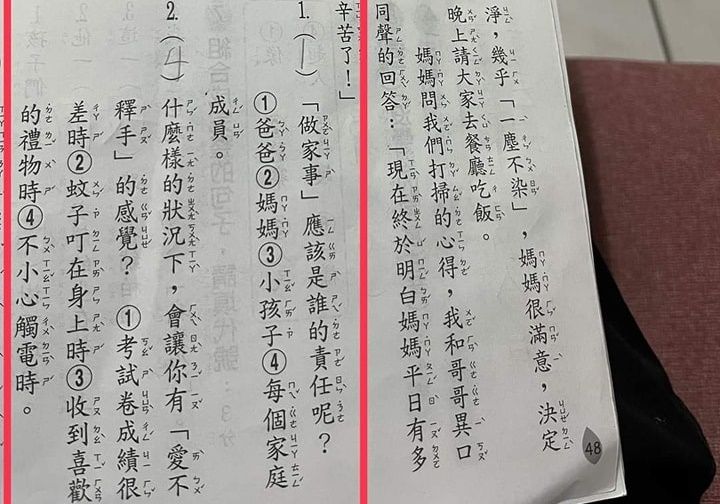 淨，幾乎「一塵不染」，媽媽很滿意，決定
晚上請大家去餐廳吃飯。
媽媽問我們打掃的心得，我和哥哥異口
同聲的回答：「現在終於明白媽媽平日有多
辛苦了！」
1.（1）「做家事」應該是誰的責任呢？
①爸爸②媽媽③小孩子④每個家庭
成員。
2.（4）什麼樣的狀況下，會讓你有「愛不
釋手」的感覺？①考試卷成績很
差時②蚊子叮在身上時③收到喜歡
的禮物時④不小心觸電時。
48